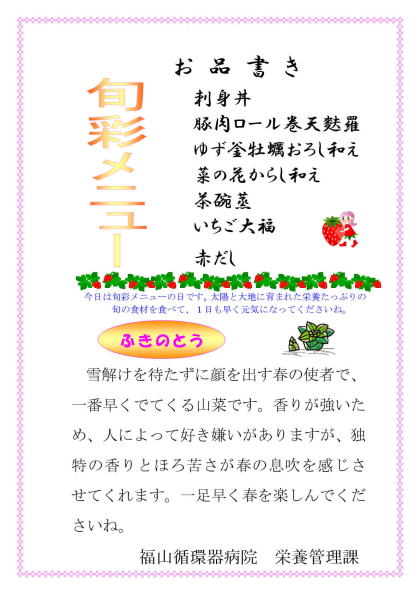 お品書き
旬彩メニュー
刺身丼
豚肉ロール巻天麩羅
ゆず釜牡蠣おろし和え
菜の花からし和え
茶碗蒸
いちご大福
赤だし
今日は旬彩メニューの日です。太陽と大地に育まれた栄養たっぷりの
旬の食材を食べて、１日も早く元気になってくださいね。
ふきのとう
雪解けを待たずに顔を出す春の使者で、
一番早くでてくる山菜です。香りが強いた
め、人によって好き嫌いがありますが、独
特の香りとほろ苦さが春の息吹を感じさ
せてくれます。一足早く春を楽しんでくだ
さいね。
福山循環器病院　栄養管理課